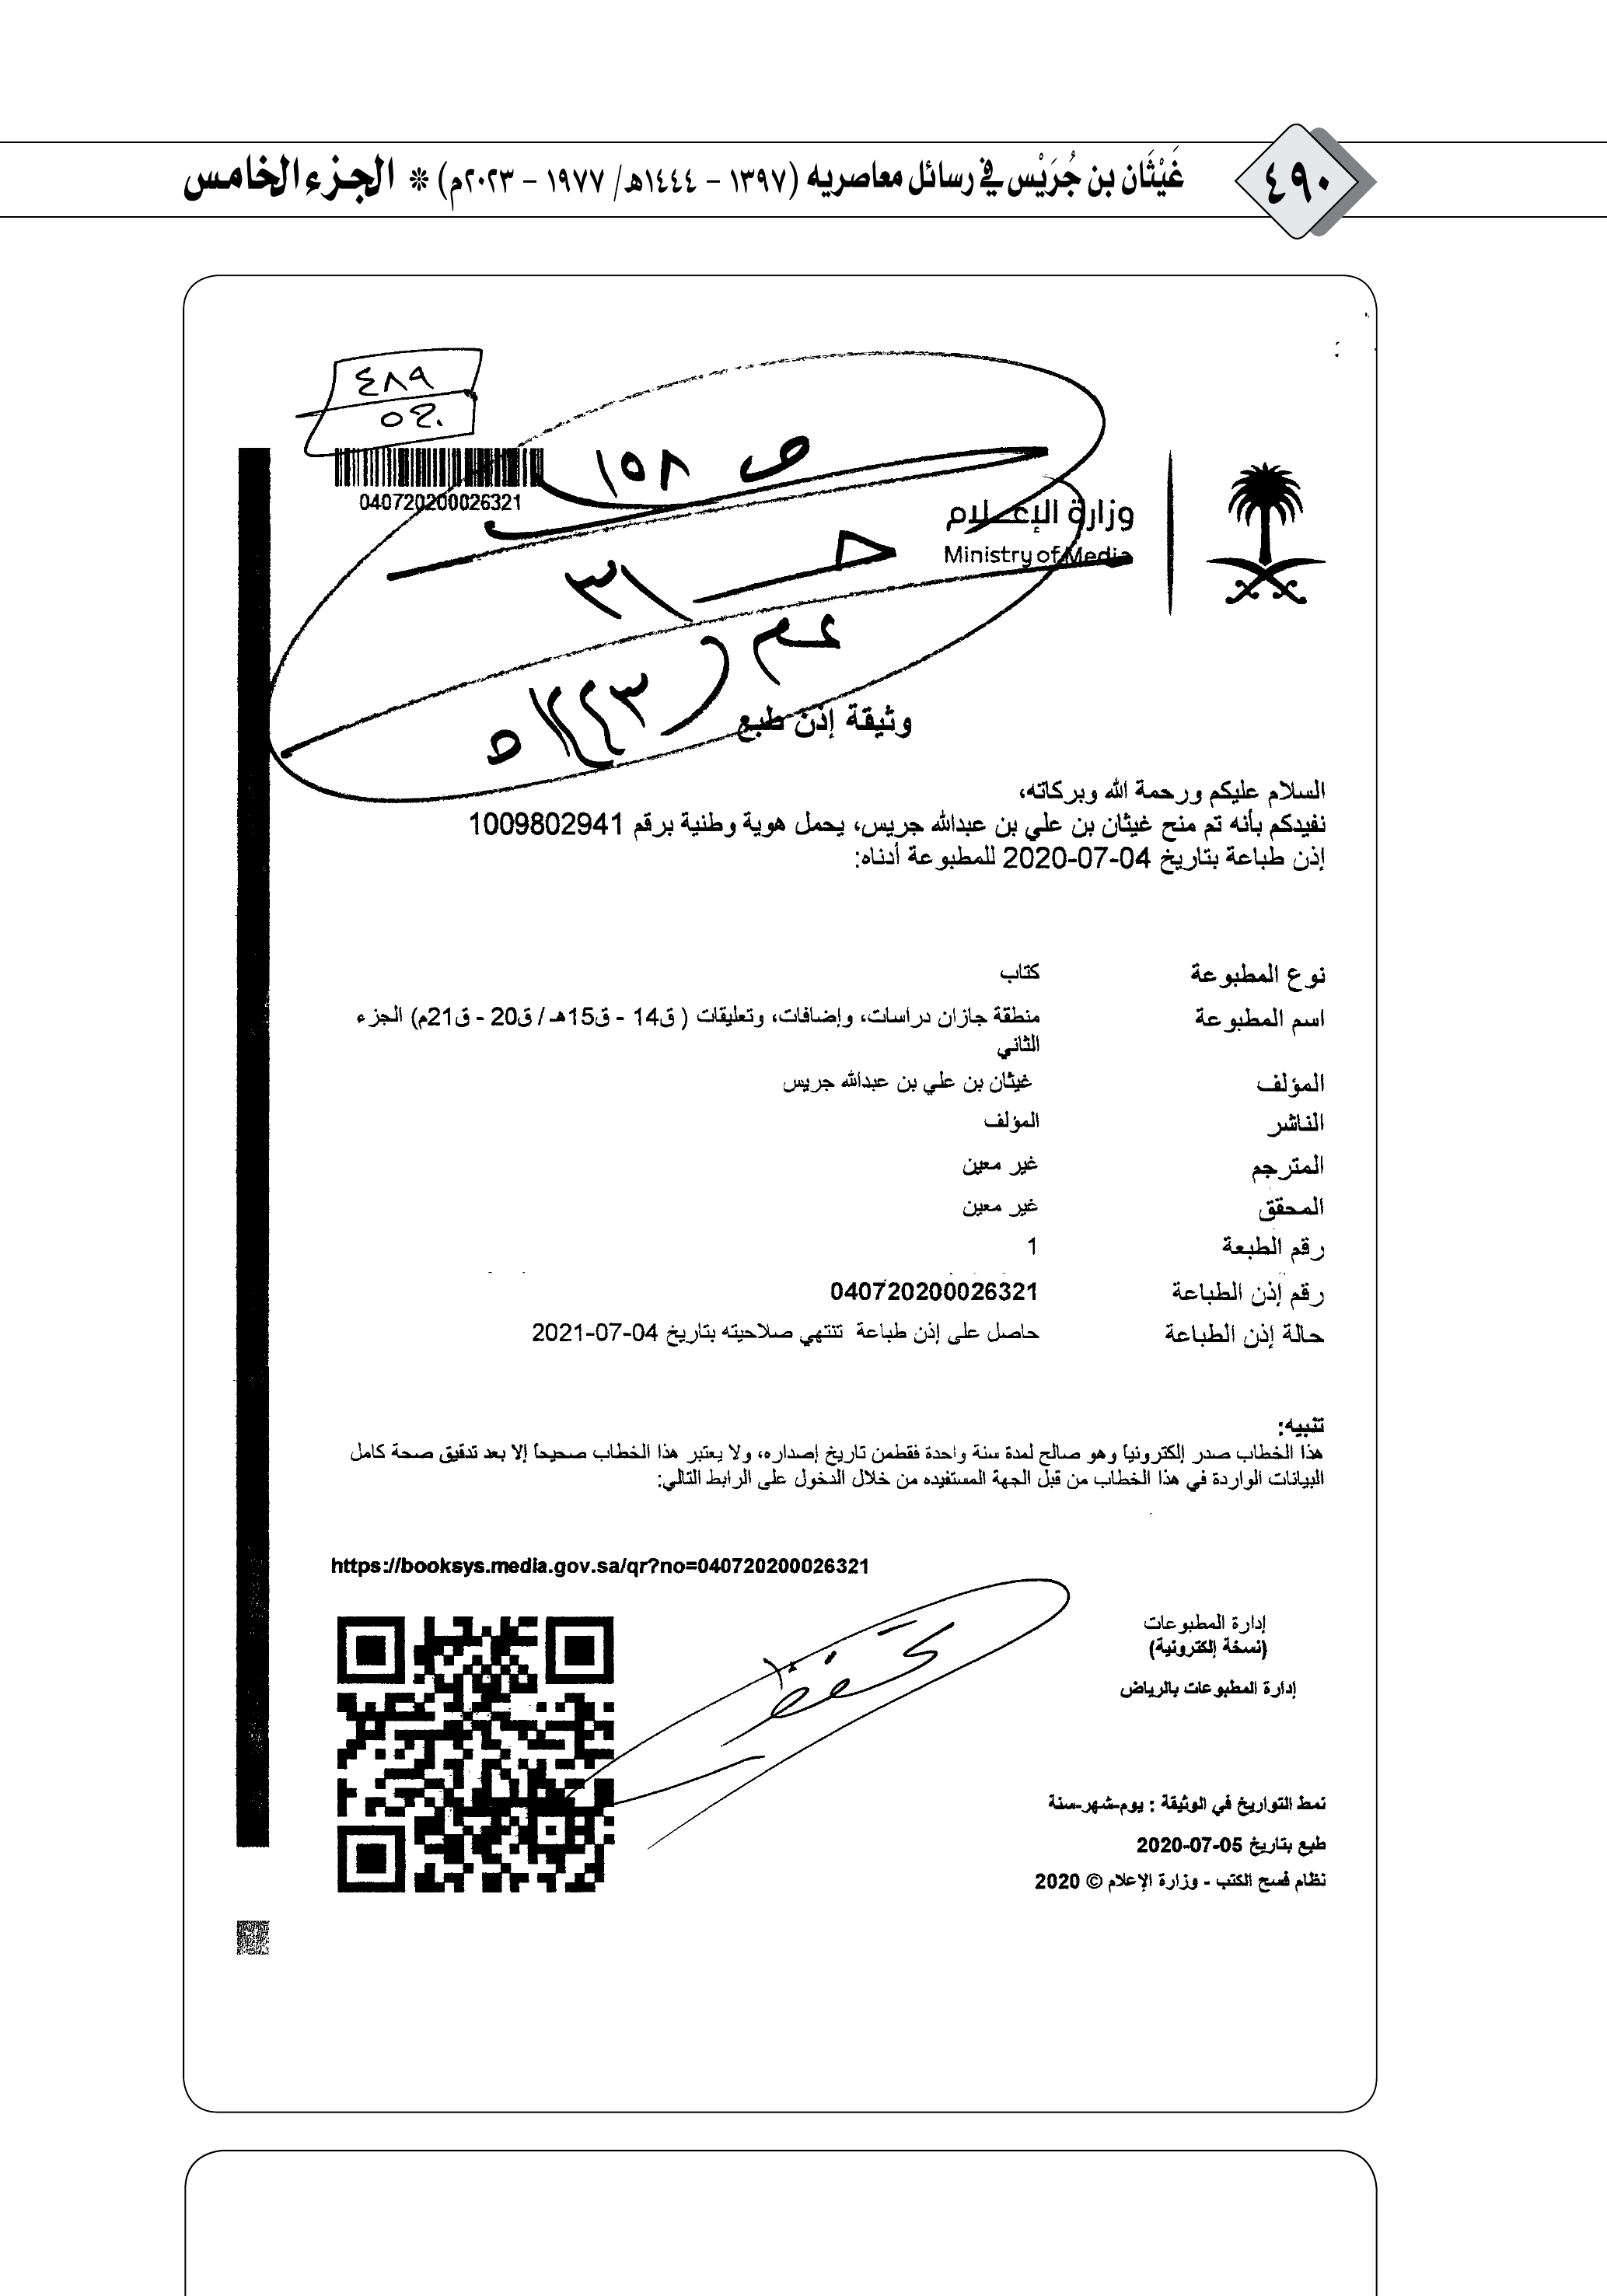 ٤٩٠
غَيْثَان بن جُرَيْس في رسائل معاصريه (١٣٩٧ – ١٤٤٤هـ/ ١٩٧٧ – ٢٠٢٣م) * الجزء الخامس
٤٨٩
040720200026321
ص ١٥٨
وزارة الإعلام
Ministry of Media
حـ ٣١
وثيقة إذن طبع
السلام عليكم ورحمة الله وبركاته،
نفيدكم بأنه تم منح غيثان بن علي بن عبدالله جريس، يحمل هوية وطنية برقم 1009802941
إذن طباعة بتاريخ 04-07-2020 للمطبوعة أدناه:
نوع المطبوعة كتاب
اسم المطبوعة منطقة جازان دراسات، وإضافات، وتعليقات ( ق14 - ق15هـ / ق20 - ق21م) الجزء
الثاني
المؤلف غيثان بن علي بن عبدالله جريس
الناشر المؤلف
المترجم غير معين
المحقق غير معين
رقم الطبعة 1
رقم إذن الطباعة 040720200026321
حالة إذن الطباعة حاصل على إذن طباعة تنتهي صلاحيته بتاريخ 04-07-2021
تنبيه:
هذا الخطاب صدر إلكترونياً وهو صالح لمدة سنة واحدة فقطمن تاريخ إصداره، ولا يعتبر هذا الخطاب صحيحاً إلا بعد تدقيق صحة كامل
البيانات الواردة في هذا الخطاب من قبل الجهة المستفيده من خلال الدخول على الرابط التالي:
https://booksys.media.gov.sa/qr?no=040720200026321
إدارة المطبوعات
(نسخة إلكترونية)
إدارة المطبوعات بالرياض
نمط التواريخ في الوثيقة : يوم-شهر-سنة
طبع بتاريخ 05-07-2020
نظام فسح الكتب - وزارة الإعلام © 2020